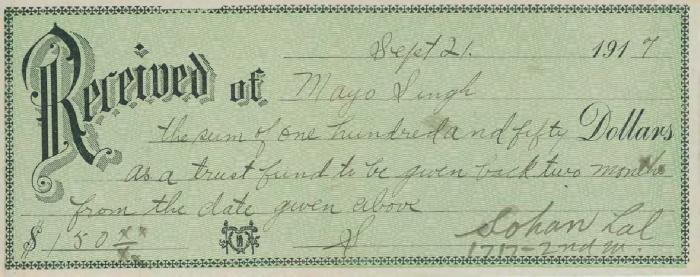 Sept 21. 1917
Received of Mayo Singh
the sum of one hundred and fifty Dollars
as a trust fund to be given back two months
from the date given above
$ 150 xx/xx Sohan Lal
1717-2nd